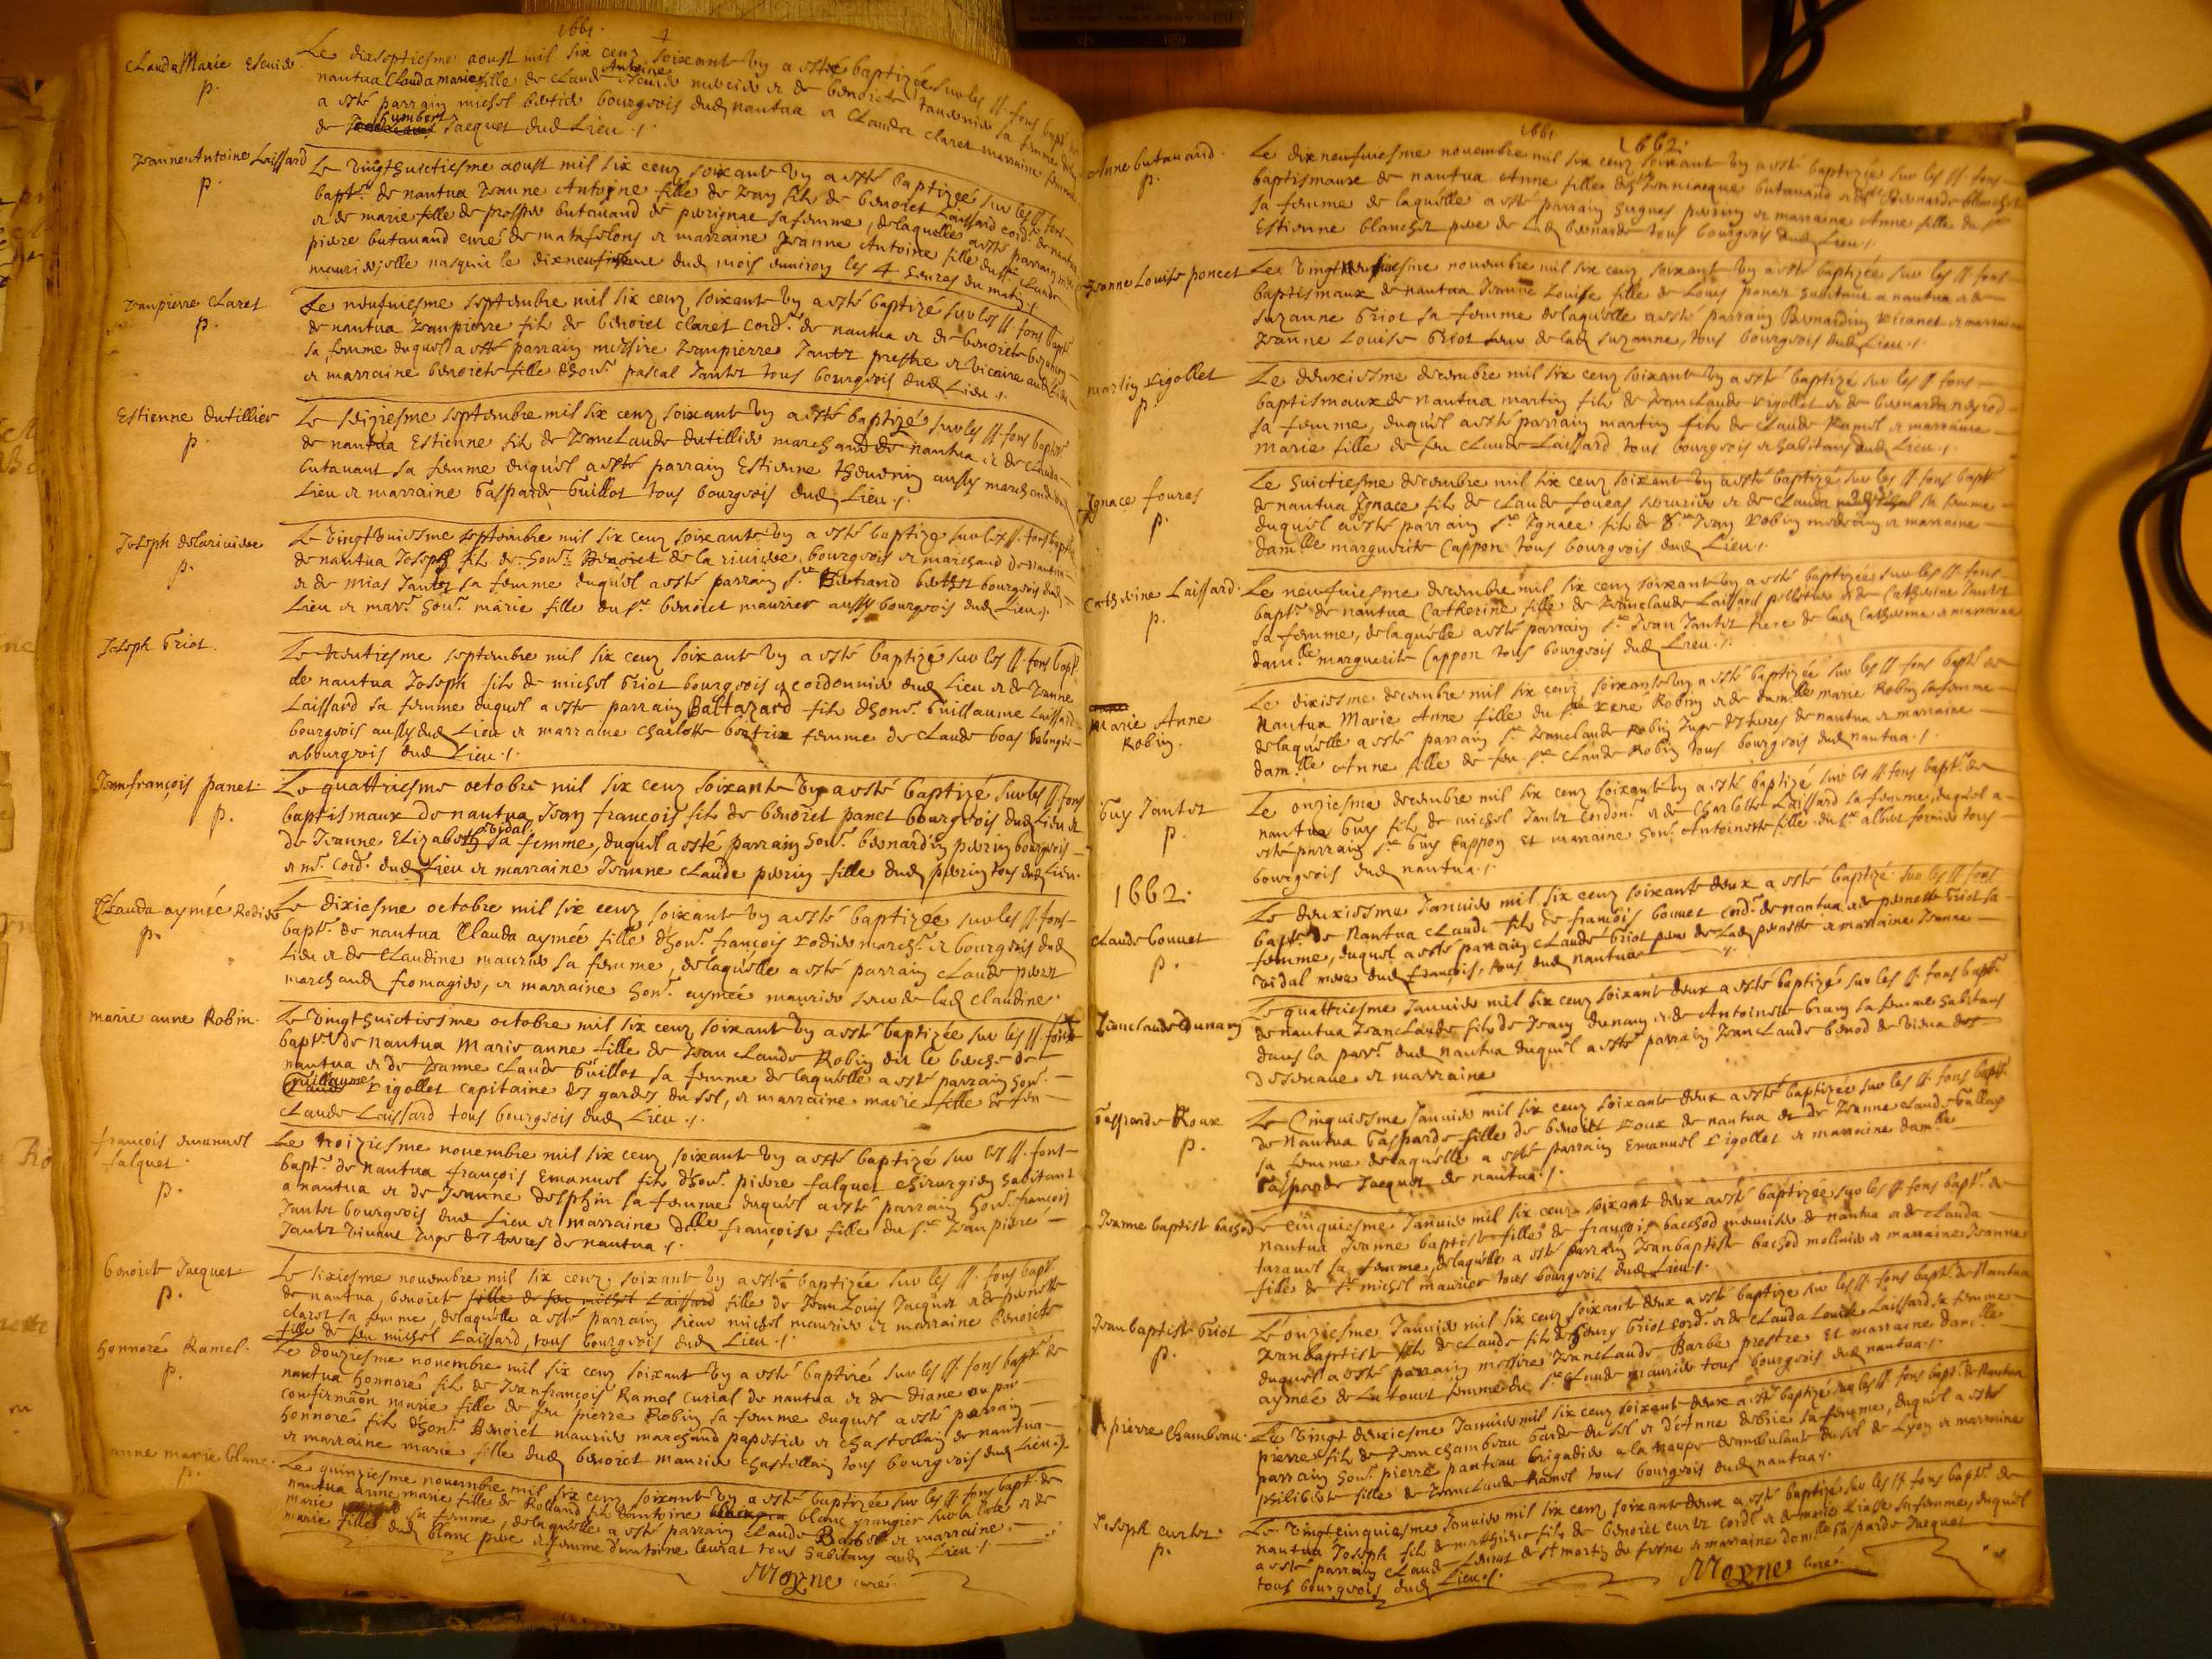 1661.
Clauda Marie
p.
Le dixseptiesme aoust mil six cens soixante un a esté baptizée sur les ff. fons bapt.
nantua Clauda marie fille de Claude Antoine et de benoicte sa femme
a esté parrain michel bourgeois dud nantua et Clauda Claret marraine femme
de humbert Jacquet dud Lieu ./.
Jeanne Antoine Laissard
p.
Le vingthuictiesme aoust mil six cens soixante un a esté baptizée sur les ff. fons
bapt. de nantua Jeanne Antoyne fille de Jean fils de benoict Laissard cord. de nantua
et de marie fille de prosper butavand de perignac sa femme, de laquelle a esté parrain
pierre butavand curé de matafelons et marraine Jeanne Antoine fille du Sr. Claude
maurier, elle nasquit le dixneufviesme dud mois environ les 4 heures du matin ./.
Jeanpierre Claret
p.
Le neufviesme septembre mil six cens soixante un a esté baptizé sur les ff. fons bapt.
de nantua Jeanpierre fils de benoict Claret cord. de nantua et de benoicte
sa femme duquel a esté parrain messire Jeanpierre Jantet prestre et vicaire aud Lieu
et marraine benoicte fille d'hon. pascal Jantet tous bourgeois dud Lieu ./.
Estienne dutillier
p.
Le septembre mil six cens soixante un a esté baptizé sur les ff. fons bapt.
de nantua Estienne fils de Jean Claude dutillier marchand de nantua et de Clauda
butavant sa femme duquel a esté parrain Estienne thevenin aussy marchand dud
Lieu et marraine Gasparde Guillot tous bourgeois dud Lieu ./.
Joseph delariviere
p.
Le septembre mil six cens soixante un a esté baptizé sur les ff. fons bapt.
de nantua Joseph fils de hon. Benoict de la riviere, bourgeois et marchand de nantua
et de mias Jantet sa femme duquel a esté parrain Sr. Bertrand bourgeois dud
Lieu et mar. hon. marie fille du Sr. benoict maurier aussy bourgeois dud Lieu ./.
Joseph Griot.
Le trentiesme septembre mil six cens soixante un a esté baptizé sur les ff. fons bapt
de nantua Joseph fils de michel Griot bourgeois et cordonnier dud Lieu et de Jeanne
Laissard sa femme duquel a esté parrain Baltazard fils d'hon. Guillaume Laissard
bourgeois aussy dud Lieu et marraine Charlotte femme de Claude
et bourgeois dud Lieu ./.
Jeanfrançois panet
p.
Le quattriesme octobre mil six cens soixante un a esté baptizé sur les ff. fons
baptismaux de nantua Jean françois fils de benoict panet bourgeois dud Lieu et
de Jeanne Elizabeth vidal sa femme, duquel a esté parrain hon. benardin perrin bourgeois
et m. cord. dud Lieu et marraine Jeanne Claude perrin fille dud perrin tous dud Lieu.
Clauda aymée Rodier
p.
Le dixiesme octobre mil six cens soixante un a esté baptizée sur les ff. fons
bapt. de nantua Clauda aymée fille d'hon. françois rodier march. et bourgeois dud
Lieu et de Claudine maurier sa femme, de laquelle a esté parrain Claude
marchand fromagier, et marraine hon. aymée maurier seur de lad Claudine.
marie anne Robin.
Le vingthuictiesme octobre mil six cens soixante un a esté baptizée sur les ff. fons
bapt. de nantua Marie anne fille de Jean Claude Robin dit le
nantua et de Jeanne Claude Guillot sa femme de laquelle a esté parrain hon.
Guillaume rigollet capitaine des gardes du sel, et marraine marie fille de feu
Claude Laissard tous bourgeois dud Lieu ./.
françois emanuel
falquet.
p.
Le novembre mil six cens soixante un a esté baptizé sur les ff. fons
bapt. de nantua françois Emanuel fils d'hon. pierre falquet chirurgien habitant
a nantua et de Jeanne delphin sa femme duquel a esté parrain hon. françois
Jantet bourgeois dud Lieu et marraine d.lle françoise fille du Sr. Jeanpierre
Jantet vivant Juge des terres de nantua ./.
benoicte Jacquet
p.
Le sixiesme novembre mil six cens soixante un a esté baptizée sur les ff. fons bapt.
de nantua, benoicte fille de feu michel Laissard fille de Jean Louis Jacquet et de pernette
Claret sa femme, de laquelle a esté parrain, sieur michel maurier et marraine benoicte
fille de feu michel Laissard, tous bourgeois dud Lieu ./.
honnoré Ramel.
p.
Le douziesme novembre mil six cens soixante un a esté baptizé sur les ff. fons bapt. de
nantua honnoré fils de Jeanfrançois Ramel curial de nantua et de diane ou par
confirmaon marie fille de feu pierre Robin sa femme duquel a esté parrain
honnoré fils d'hon. Benoict maurier marchand papetier et chastellain de nantua
et marraine marie fille dud benoict maurier chastellain tous bourgeois dud Lieu ./.
anne marie blanc.
p.
Le quinziesme novembre mil six cens soixante un a esté baptizée sur les ff. fons bapt. de
nantua anne marie fille de Rolland fils d'antoine blanc grangier sur le lac et de
marie sa femme, de laquelle a esté parrain Claude Barbe et marraine
marie fille dud blanc et femme d'antoine Leurat tous habitans aud Lieu ./.
Moyne curé.
1661 1662.
Anne butavand.
p.
Le dixneufviesme novembre mil six cens soixante un a esté baptizée sur les ff. fons
baptismaux de nantua Anne fille de butavand et de Benarde blanchet
sa femme de laquelle a esté parrain hugues perrin et marraine Anne fille du Sr
Estienne blanchet pere de lad benarde tous bourgeois dud Lieu ./.
Jeanne Louise poncet
Le novembre mil six cens soixante un a esté baptizée sur les ff. fons
baptismaux de nantua Jeanne Louise fille de Louis poncet habitant a nantua et de
suzanne Griot sa femme de laquelle a esté parrain Bernardin vicanet et marraine
Jeanne Louise Griot seur de lad suzanne, tous bourgeois dud Lieu ./.
martin rigollet
p.
Le deuxiesme decembre mil six cens soixante un a esté baptizé sur les ff. fons
baptismaux de nantua martin fils de Jean Claude rigollet et de benarda
sa femme, duquel a esté parrain martin fils de Claude Ramel et marraine
marie fille de feu Claude Laissard tous bourgeois et habitans dud Lieu ./.
Ignace fouras
p.
Le huictiesme decembre mil six cens soixante un a esté baptizé sur les ff. fons bapt
de nantua Ignace fils de Claude fouras serrurier et de Clauda sa femme
duquel a esté parrain Sr. Ignace fils de Sr. Jean Robin medecin et marraine
dam.lle marguerite Cappon tous bourgeois dud Lieu ./.
Catherine Laissard.
p.
Le neufviesme decembre mil six cens soixante un a esté baptizée sur les ff. fons
bapt. de nantua Catherine fille de Jean Claude Laissard et de Catherine Jantet
sa femme, de laquelle a esté parrain Sr. Jean Jantet frere de lad Catherine et marraine
dam.lle marguerite Cappon tous bourgeois dud Lieu ./.
marie Anne
Robin.
Le dixiesme decembre mil six cens soixante un a esté baptizée sur les ff. fons bapt. de
Nantua Marie Anne fille du Sr. rene Robin et de dam.lle marie Robin sa femme
de laquelle a esté parrain Sr. Jean Claude Robin Juge des terres de nantua et marraine
dam.lle Anne fille de feu Sr. Claude Robin tous bourgeois dud nantua ./.
Guy Jantet
p.
Le onziesme decembre mil six cens soixante un a esté baptizé sur les ff. fons bapt. de
nantua Guy fils de michel Jantet cordon. et de Charlotte Laissard sa femme, duquel a
esté parrain Sr. Guy Cappon et marraine hon. Antoinette fille du Sr. albert fornier tous
bourgeois dud nantua ./.
1662.
Claude bonnet
p.
Le deuxiesme Janvier mil six cens soixante deux a esté baptizé sur les ff. fons
bapt. de Nantua Claude fils de françois bonnet cord. de nantua et de pernette Griot sa
femme, duquel a esté parrain Claude Griot pere de lad pernette et marraine Jeanne
vidal mere dud françois, tous dud nantua ./.
Jeanclaude dunany
Le quattriesme Janvier mil six cens soixante deux a esté baptizé sur les ff. fons bapt.
de nantua Jean Claude fils de Jean dunany et de Antoinette sa femme habitans
dans la parr. dud nantua duquel a esté parrain Jean Claude benod de
et marraine
Gasparde Roux
p.
Le Cinquiesme Janvier mil six cens soixante deux a esté baptizée sur les ff. fons bapt.
de Nantua Gasparde fille de benoict roux de nantua et de Jeanne Claude
sa femme de laquelle a esté parrain Emanuel rigollet et marraine dam.lle
Gasparde Jacquet de nantua ./.
Jeanne baptiste bachod
Le cinquiesme Janvier mil six cens soixante deux a esté baptizée sur les ff. fons bapt. de
nantua Jeanne baptiste fille de françois bacchod de nantua et de Clauda
taravel sa femme, de laquelle a esté parrain Jeanbaptiste bachod et marraine Jeanne
fille de Sr. michel maurier tous bourgeois dud Lieu ./.
Jeanbaptiste Griot
p.
Le onziesme Janvier mil six cens soixante deux a esté baptizé sur les ff. fons bapt. de Nantua
Jeanbaptiste fils de Claude fils de henry Griot cord. et de Clauda Louise Laissard sa femme
duquel a esté parrain messire Jean Claude Barbe prestre et marraine dam.lle
aymée de La tour femme du Sr. Claude maurier tous bourgeois dud nantua ./.
pierre Chambeau.
Le vingt Janvier mil six cens soixante deux a esté baptizé sur les ff. fons bapt. de Nantua
pierre fils de Jean Chambeau garde du sel et d'Anne debrie sa femme, duquel a esté
parrain hon. pierre panteau brigadier a la deambulante du sel de Lyon et marraine
philiberte fille de Jean Claude Ramel tous bourgeois dud nantua ./.
Joseph curtet.
p.
Le vingtcinquiesme Janvier mil six cens soixante deux a esté baptizé sur les ff. fons bapt. de
nantua Joseph fils de fils de benoict curtet cord. et de marie sa femme, duquel
a esté parrain Claude de st martin du fresne et marraine dam.lle Gasparde Jacquet
tous bourgeois dud Lieu ./.
Moyne curé